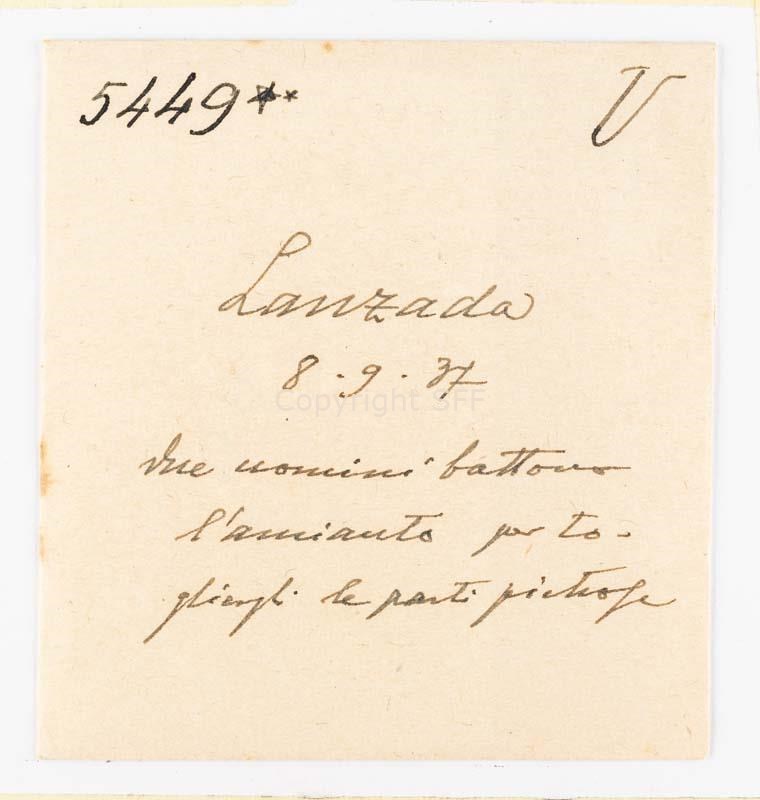 5449**
V
Lanzada
8.9.37
Copyright SFF
due uomini battono
l'amianto per to-
gliergli le parti pietrose